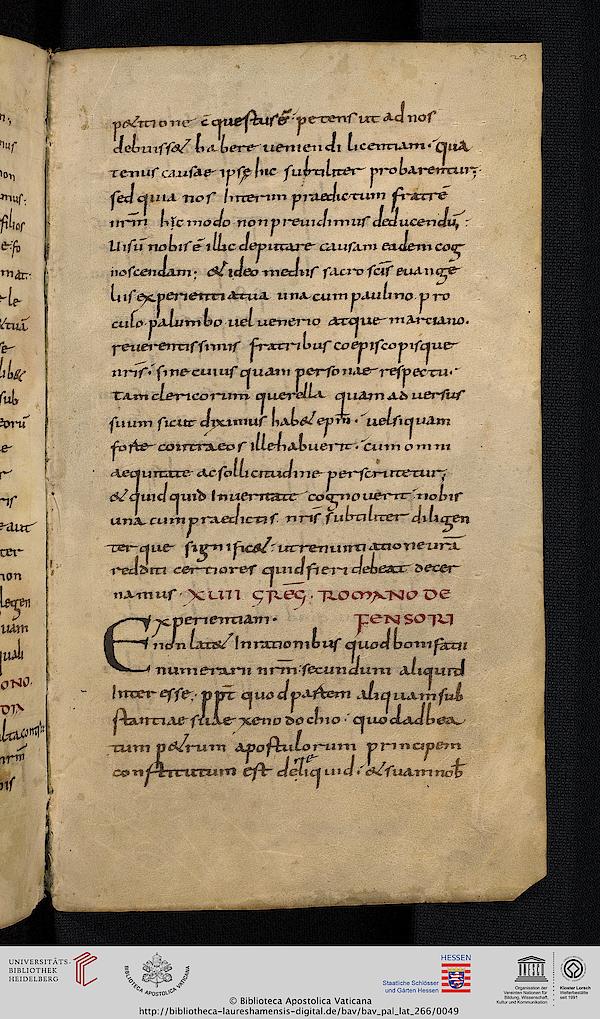 petitione c̄ questus ē petens ut ad nos
debuisset habere ueniendi licentiam · qua
tenus causae ipsę hic subtiliter probarentur;
sed quia nos Interim praedictum fratrē
nr̄m hic modo non preuidimus deducendū ;
Uisū nobis ē illic deputare causam eadem cog
noscendam; et ideo mediis sacro scīs euangē
liis experienti a tua una cum paulino pro
culo palumbo uel uenerio atque marciano ·
reuerentissimis fratribus coepiscopisque
nr̄is · sine cuius quam personae respectu ·
tam clericorum querella quam aduersus
suum sicut diximus habet ep̄m · uel siquam
forte contra eos ille habuerit · cum omni
aequitate ac sollicitudine perscrutetur;
et quid quid Inueritate cognouerit · nobis
una cum praedictis nr̄is subtiliter diligen
ter que significet · ut renuntiatione urā
redditi certiores quid fieri debeat decer
namus · XUIII GREḠ · ROMANO DE
Experientiam · FENSORI
non latet Inrationibus quod bonifatii
numerarii nr̄m secundum aliquid
Inter esse · pp̄t quod partem aliquam sub
stantiae suae xenodochio · quod ad bea
tum petrum apostulorum principem
constitutum est deliquid · et suam nob̄
UNIVERSITÄTS-
BIBLIOTHEK
HEIDELBERG
BIBLIOTECA APOSTOLICA VATICANA
HESSEN
Staatliche Schlösser
und Gärten Hessen
UNESCO
Organisation der
Vereinten Nationen für
Bildung, Wissenschaft,
Kultur und Kommunikation
Kloster Lorsch
Welterbestätte
seit 1991
© Biblioteca Apostolica Vaticana
http://bibliotheca-laureshamensis-digital.de/bav/bav_pal_lat_266/0049